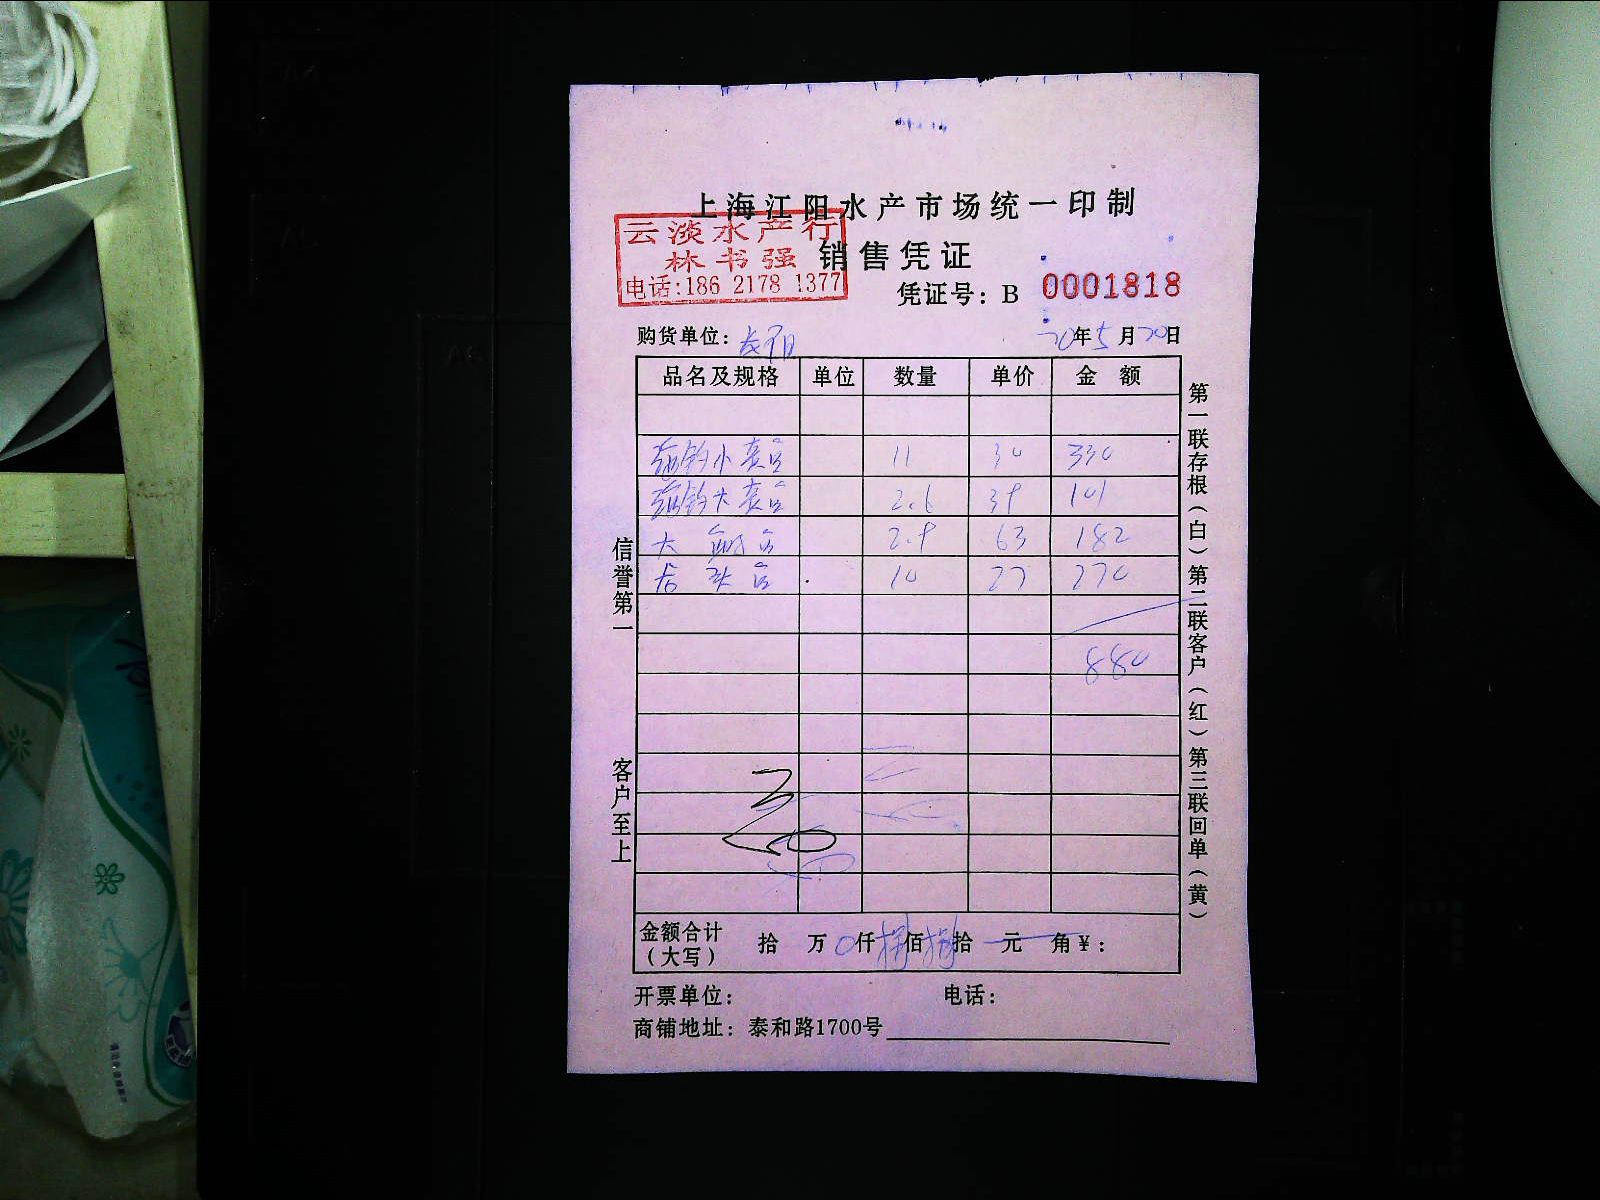 上海江阳水产市场统一印制
云淡水产行
林书强
电话:186 2178 1377
销售凭证
凭证号：B 0001818
购货单位：
20年5月20日
品名及规格 单位 数量 单价 金 额
11 30 330
2.6 39 101
大 2.9 63 182
10 27 270
880
信誉第一
客户至上
第一联存根（白）第二联客户（红）第三联回单（黄）
金额合计（大写） 拾 万 0仟捌佰捌拾 元 角￥：
开票单位： 电话：
商铺地址：泰和路1700号